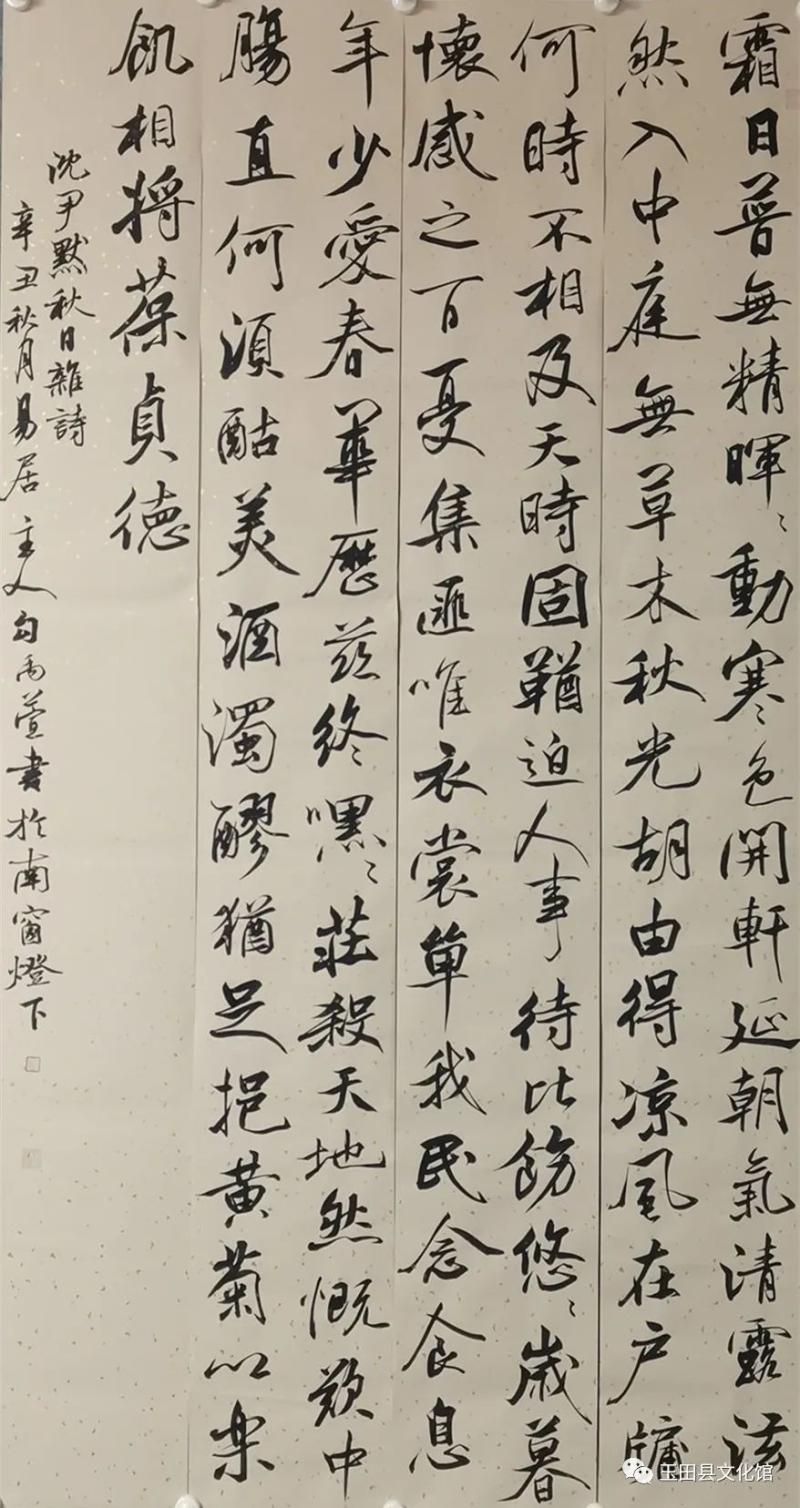 霜日普無精暉〻動寒色開軒延朝氣清露泫
然入中庭無草木秋光胡由得凉風在户牖
何時不相及天時固鞧迫人事待比飭悠〻歲暮
懷感之百憂集匪唯衣裳單我民念食息
年少愛春華歷茲終嘿〻莊殺天地然慨歎中
腸直何須酤美酒濁醪猶足挹黃菊以樂
飢相將葆貞德
沈尹默秋日雜詩
辛丑秋月易居主人勾禹萱書於南窗燈下
玉田县文化馆